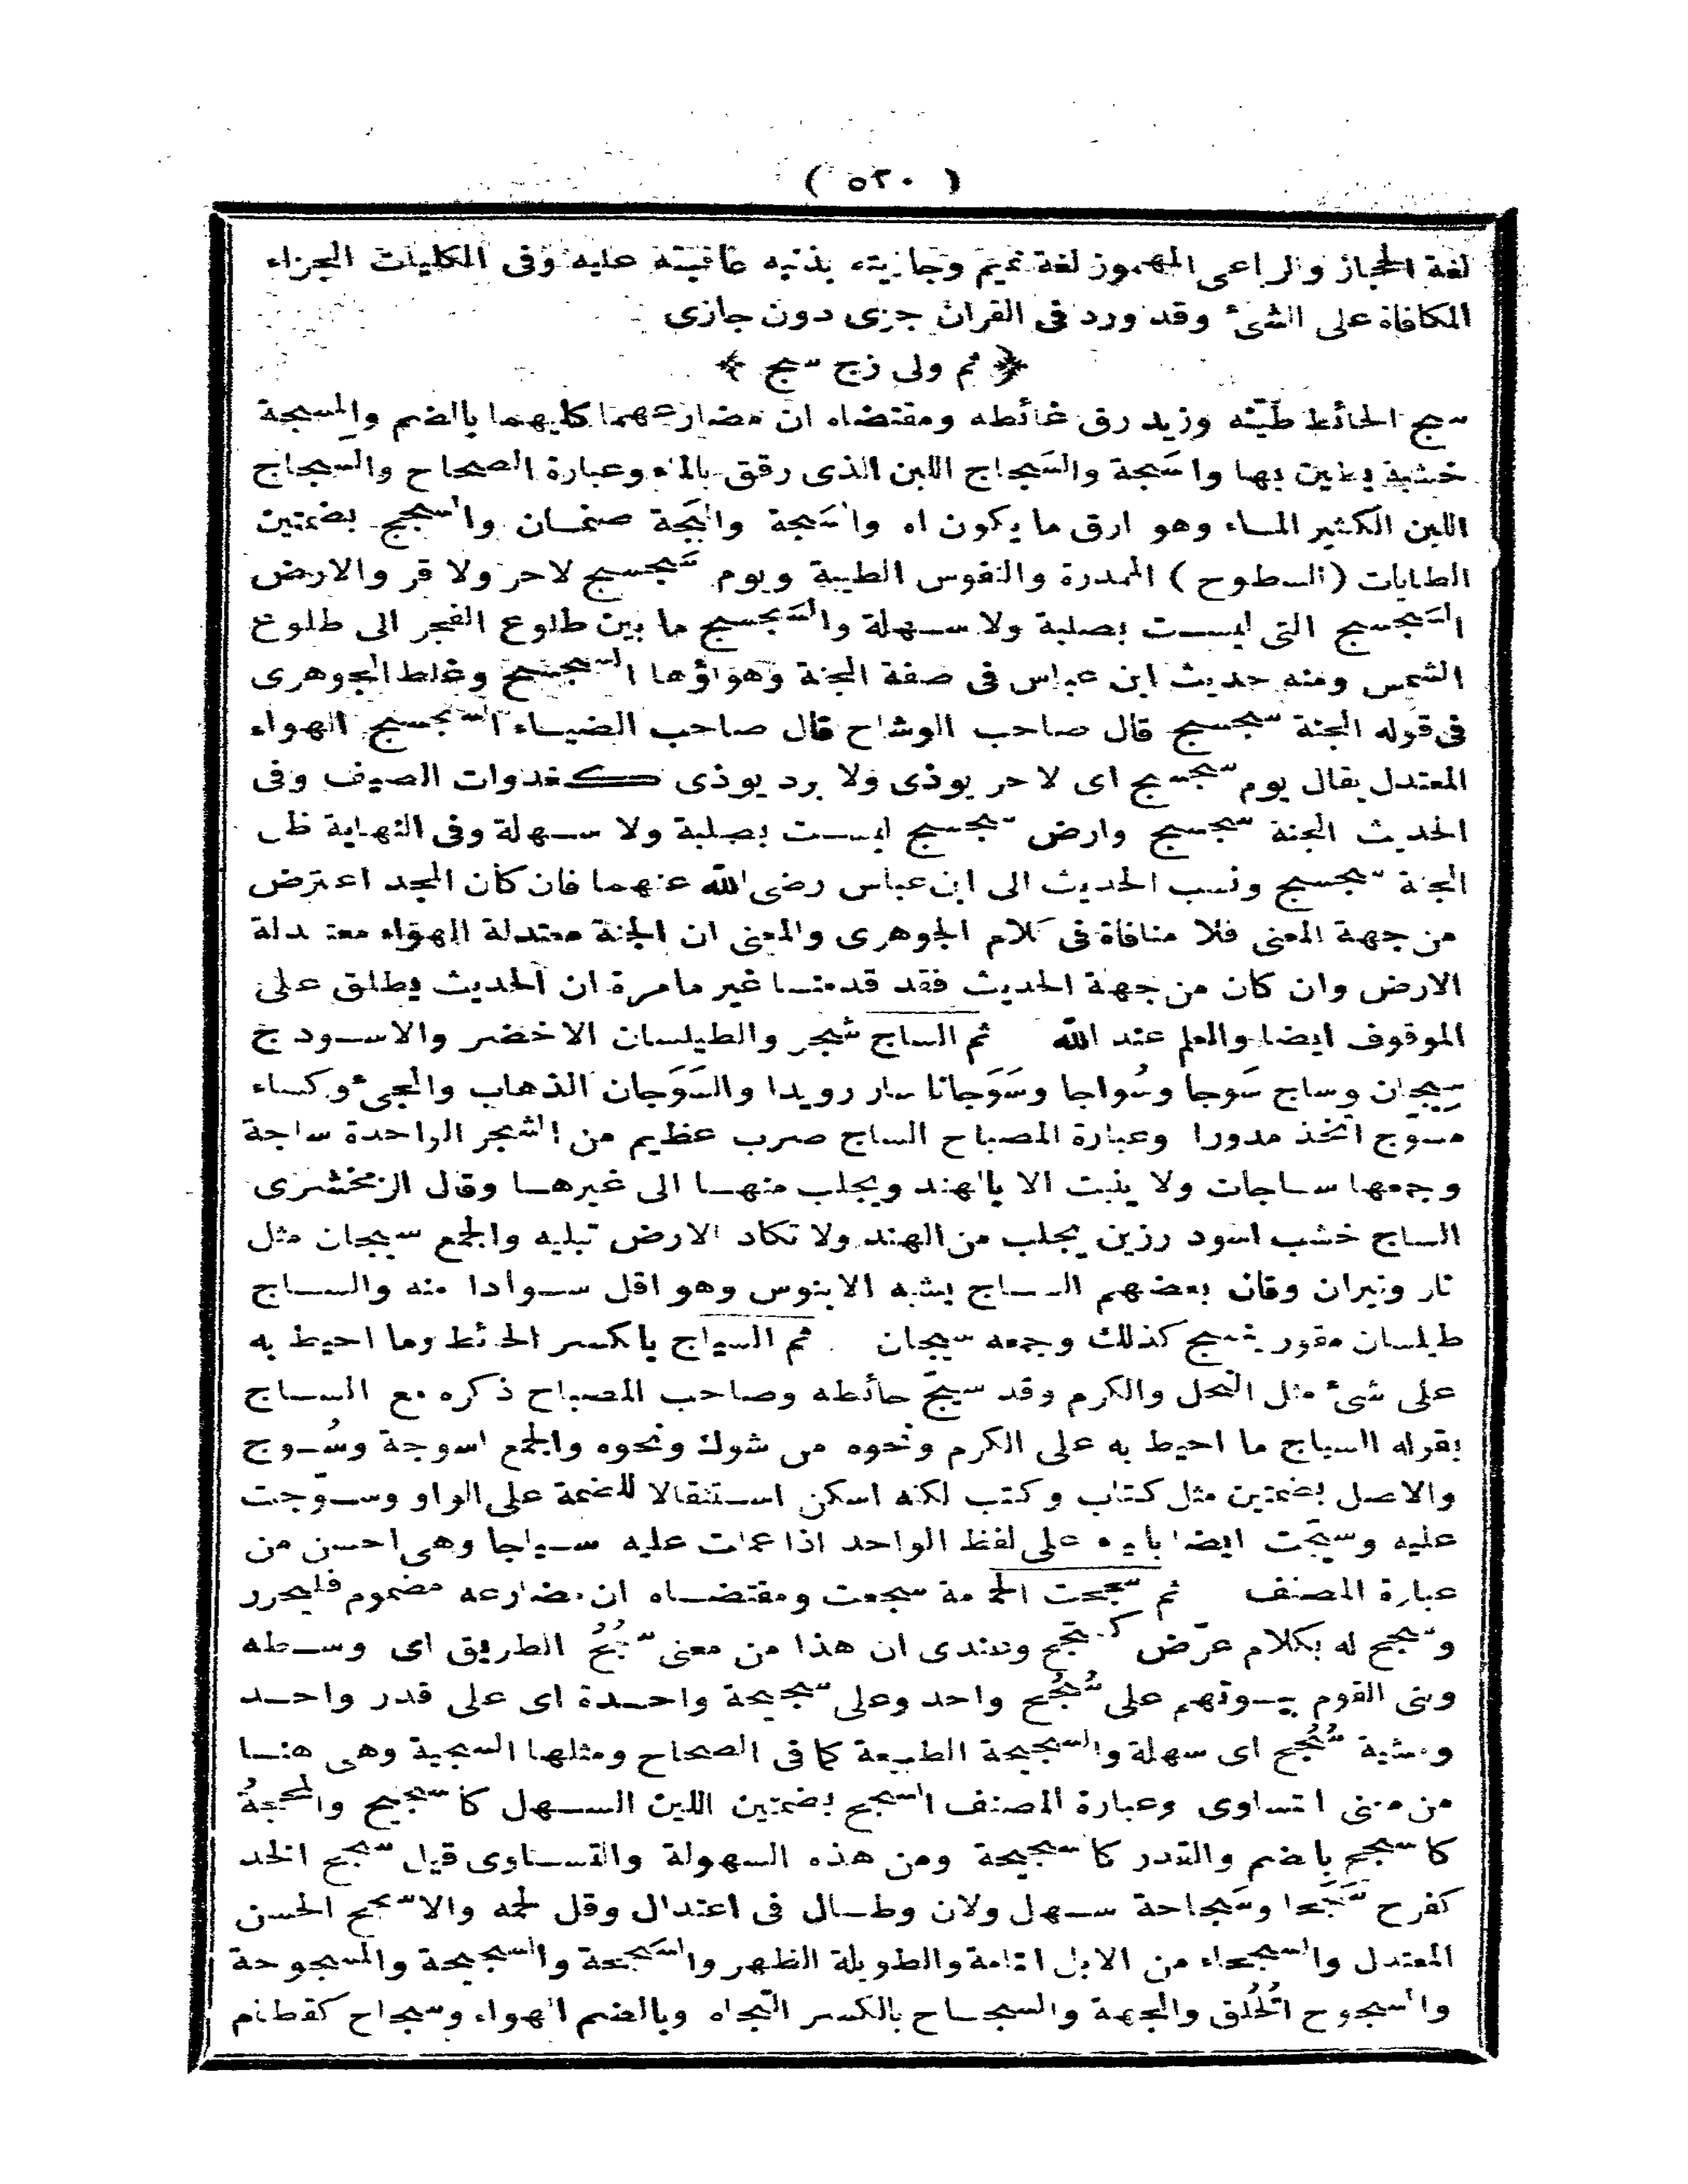 ( ٥٢٠ )
لغة الحجاز والرباعى المهموز لغة تميم وجازيته بذنبه عاقبته عليه وفى الكليات الجزاء
المكافاة على الشئ وقد ورد فى القران جزى دون جازى
﴿ ثم ولى زج سج ﴾
سج الحائط طيّنه وزيد رق غائطه ومقتضاه ان مضارعهما كليهما بالضم والمِسجة
خشبة يطين بها والسَجة والسَجاج اللبن الذى رقق بالماء وعبارة الصحاح والسجاج
اللبن الكثير الماء وهو ارق ما يكون اه والسَجة والبَجة صنمان والسجج بضمتين
الطايات (السطوح) الممدرة والنفوس الطيبة ويوم سَجسج لاحر ولا قر والارض
السَجسج التى ليست بصلبة ولا سهلة والسَجسج ما بين طلوع الفجر الى طلوع
الشمس ومنه حديث ابن عباس فى صفة الجنة وهواؤها السجسج وغلط الجوهرى
فى قوله الجنة سجسج قال صاحب الوشاح قال صاحب الضياء السجسج الهواء
المعتدل يقال يوم سجسج اى لا حر يوذى ولا برد يوذى كغدوات الصيف وفى
الحديث الجنة سجسج وارض سجسج ليست بصلبة ولا سهلة وفى النهاية ظل
الجنة سجسج ونسب الحديث الى ابن عباس رضى الله عنهما فان كان المجد اعترض
من جهة المعنى فلا منافاة فى كلام الجوهرى والمعنى ان الجنة معتدلة الهواء معتدلة
الارض وان كان من جهة الحديث فقد قدمنا غير ما مرة ان الحديث يطلق على
الموقوف ايضا والعلم عند الله ثم الساج شجر والطيلسان الاخضر والاسود ج
سِيجان وساج سَوجا وسُواجا وسَوَجانا سار رويدا والسَوَجان الذهاب والمجئ وكساء
مسوّج اتخذ مدورا وعبارة المصباح الساج ضرب عظيم من الشجر الواحدة ساجة
وجمعها ساجات ولا ينبت الا بالهند ويجلب منها الى غيرها وقال الزمخشرى
الساج خشب اسود رزين يجلب من الهند ولا تكاد الارض تبليه والجمع سيجان مثل
نار ونيران وقال بعضهم الساج يشبه الابنوس وهو اقل سوادا منه والساج
طيلسان مقور ينسج كذلك وجمعه سيجان ثم السياج بالكسر الحائط وما احيط به
على شئ مثل النخل والكرم وقد سيّج حائطه وصاحب المصباح ذكره مع الساج
بقوله السياج ما احيط به على الكرم ونحوه من شوك ونحوه والجمع اسوجة وسُوج
والاصل بضمتين مثل كتاب وكتب لكنه اسكن استثقالا للضمة على الواو وسوّجت
عليه وسيّجت ايضا بالياء على لفظ الواحد اذا عملت عليه سياجا وهى احسن من
عبارة المصنف ثم سجحت الحمامة سجعت ومقتضاه ان مضارعه مضموم فليحرر
وسجح له بكلام عرّض كسجّح وعندى ان هذا من معنى سُجُح الطريق اى وسطه
وبنى القوم بيوتهم على سُجُح واحد وعلى سجيحة واحدة اى على قدر واحد
ومشية سُجُح اى سهلة والسجيحة الطبيعة كما فى الصحاح ومثلها السجية وهى هنا
من معنى التساوى وعبارة المصنف السجح بضمتين اللين السهل كالسجيح والمحجةُ
كالسجح بالضم والقدر كالسجيحة ومن هذه السهولة والتساوى قيل سجح الخد
كفرح سَجَحا وسَجاحة سهل ولان وطال فى اعتدال وقل لحمه والاسجح الحسن
المعتدل والسجحاء من الابل التامة والطويلة الظهر والسَجحة والسجيحة والمسجوحة
والمسجوح الخُلُق والجهة والسجاح بالكسر التجاه وبالضم الهواء وسجاح كقطام